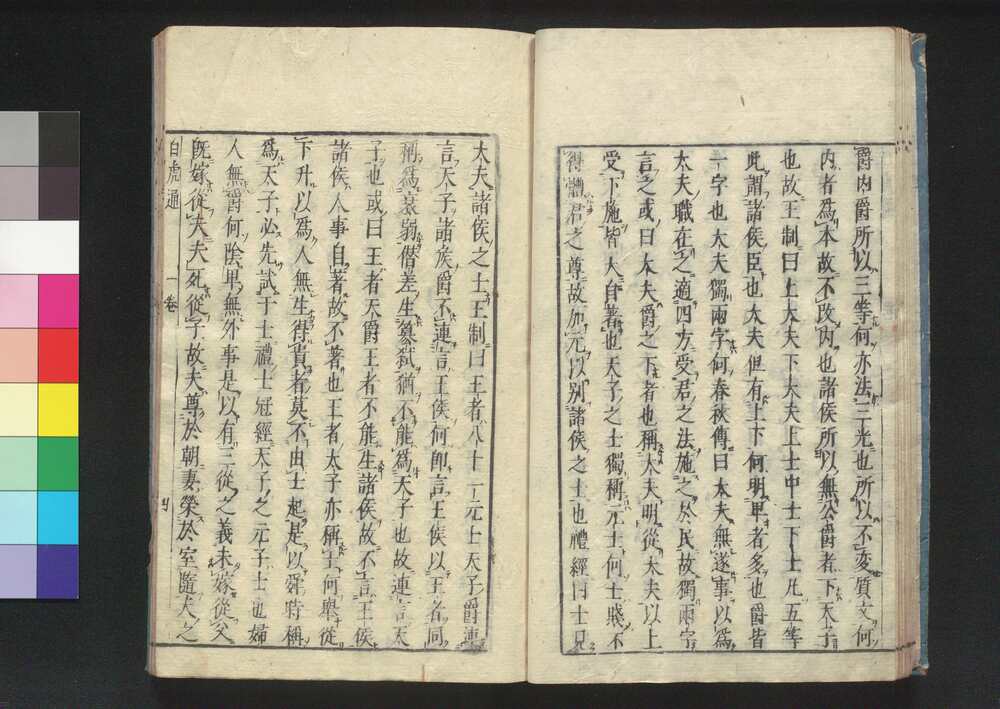 爵内爵所以三等何亦法三光也所以不変質文何
内者為本故不改内也諸侯所以無公爵者下天子
也故王制曰上大夫下大夫上士中士下士凡五等
此謂諸侯臣也大夫但有上下何明卑者多也爵皆
一字也大夫獨兩字何春秋傳曰大夫無遂事以為
大夫職在之適四方受君之法施之於民故獨兩字
言之或曰大夫爵之下者也稱大夫明從大夫以上
受下施皆大自著也天子之士獨稱元士何士賤不
得體君之尊故加元以别諸侯之士也禮經曰士見
大夫諸侯之士王制曰王者八十一元士天子爵連
言天子諸侯爵不連言王侯何即言王侯以王者同
稱為衰弱僣差生篡弑猶不能為天子也故連言天
子也或曰王者天爵王者不能生諸侯故不言王侯
諸侯人事自著故不著也王者太子亦稱士何舉從
下升以為人無生得貴者莫不由士起是以舜時稱
為天子必先試于士禮士冠經天子之元子士也婦
人無爵何陰卑無外事是以有三從之義未嫁從父
既嫁從夫夫死從子故夫尊於朝妻榮於室隨夫之
白虎通 一卷